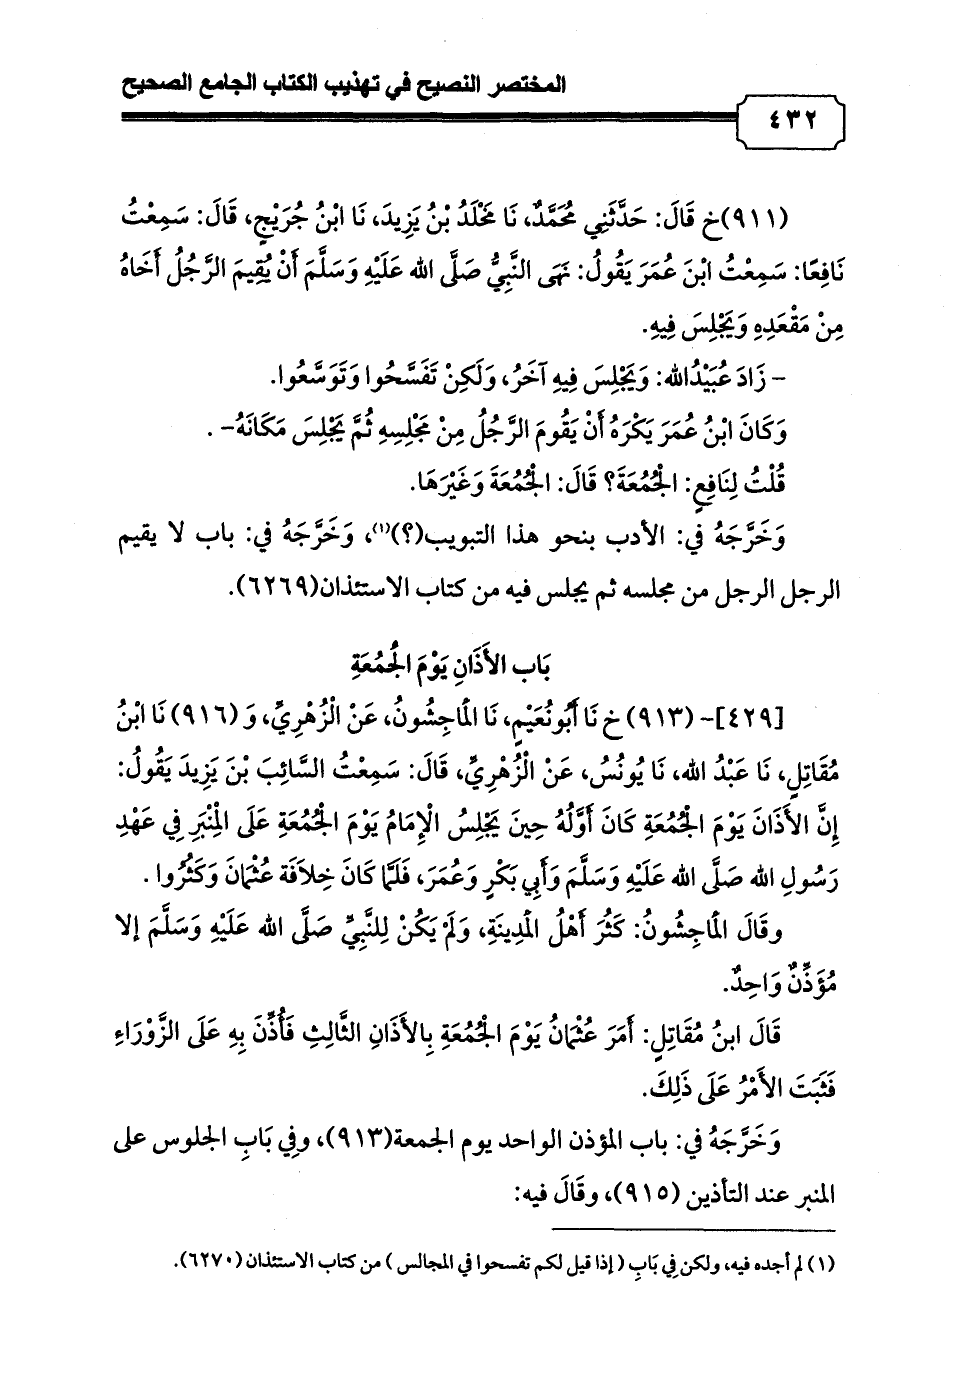 المختصر النصيح في تهذيب الكتاب الجامع الصحيح
٤٣٢
(٩١١)خ قَالَ: حَدَّثَنِي مُحَمَّدٌ، نَا مَخْلَدُ بْنُ يَزِيدَ، نَا ابْنُ جُرَيْجٍ، قَالَ: سَمِعْتُ
نَافِعًا: سَمِعْتُ ابْنَ عُمَرَ يَقُولُ: نَهَى النَّبِيُّ صَلَّى الله عَلَيْهِ وَسَلَّمَ أَنْ يُقِيمَ الرَّجُلُ أَخَاهُ
مِنْ مَقْعَدِهِ وَيَجْلِسَ فِيهِ.
- زَادَ عُبَيْدُالله: وَيَجْلِسَ فِيهِ آخَرُ، وَلَكِنْ تَفَسَّحُوا وَتَوَسَّعُوا.
وَكَانَ ابْنُ عُمَرَ يَكْرَهُ أَنْ يَقُومَ الرَّجُلُ مِنْ مَجْلِسِهِ ثُمَّ يَجْلِسَ مَكَانَهُ- .
قُلْتُ لِنَافِعٍ: الْجُمُعَةَ؟ قَالَ: الْجُمُعَةَ وَغَيْرَهَا.
وَخَرَّجَهُ في: الأدب بنحو هذا التبويب(؟)(١)، وَخَرَّجَهُ في: باب لا يقيم
الرجل الرجل من مجلسه ثم يجلس فيه من كتاب الاستئذان(٦٢٦٩).
بَاب الأَذَانِ يَوْمَ الْجُمُعَةِ
[٤٢٩]- (٩١٣) خ نَا أَبُونُعَيْمٍ، نَا الْمَاجِشُونُ، عَنْ الْزُهْرِيِّ، وَ (٩١٦) نَا ابْنُ
مُقَاتِلٍ، نَا عَبْدُ الله، نَا يُونُسُ، عَنْ الْزُهْرِيِّ، قَالَ: سَمِعْتُ السَّائِبَ بْنَ يَزِيدَ يَقُولُ:
إِنَّ الأَذَانَ يَوْمَ الْجُمُعَةِ كَانَ أَوَّلُهُ حِينَ يَجْلِسُ الْإِمَامُ يَوْمَ الْجُمُعَةِ عَلَى الْمِنْبَرِ فِي عَهْدِ
رَسُولِ الله صَلَّى الله عَلَيْهِ وَسَلَّمَ وَأَبِي بَكْرٍ وَعُمَرَ، فَلَمَّا كَانَ خِلاَفَة عُثْمَانَ وَكَثُرُوا .
وقَالَ الْمَاجِشُونُ: كَثُرَ أَهْلُ الْمَدِينَةِ، وَلَمْ يَكُنْ لِلنَّبِيِّ صَلَّى الله عَلَيْهِ وَسَلَّمَ إلا
مُؤَذِّنٌ وَاحِدٌ.
قَالَ ابنُ مُقَاتِلٍ: أَمَرَ عُثْمَانُ يَوْمَ الْجُمُعَةِ بِالأَذَانِ الثَّالِثِ فَأُذِّنَ بِهِ عَلَى الزَّوْرَاءِ
فَثَبَتَ الأَمْرُ عَلَى ذَلِكَ.
وَخَرَّجَهُ في: باب المؤذن الواحد يوم الجمعة(٩١٣)، وفِي بَابِ الجلوس على
المنبر عند التأذين (٩١٥)، وقَالَ فيه:
(١) لم أجده فيه، ولكن فِي بَابِ (إذا قيل لكم تفسحوا في المجالس) من كتاب الاستئذان (٦٢٧٠).